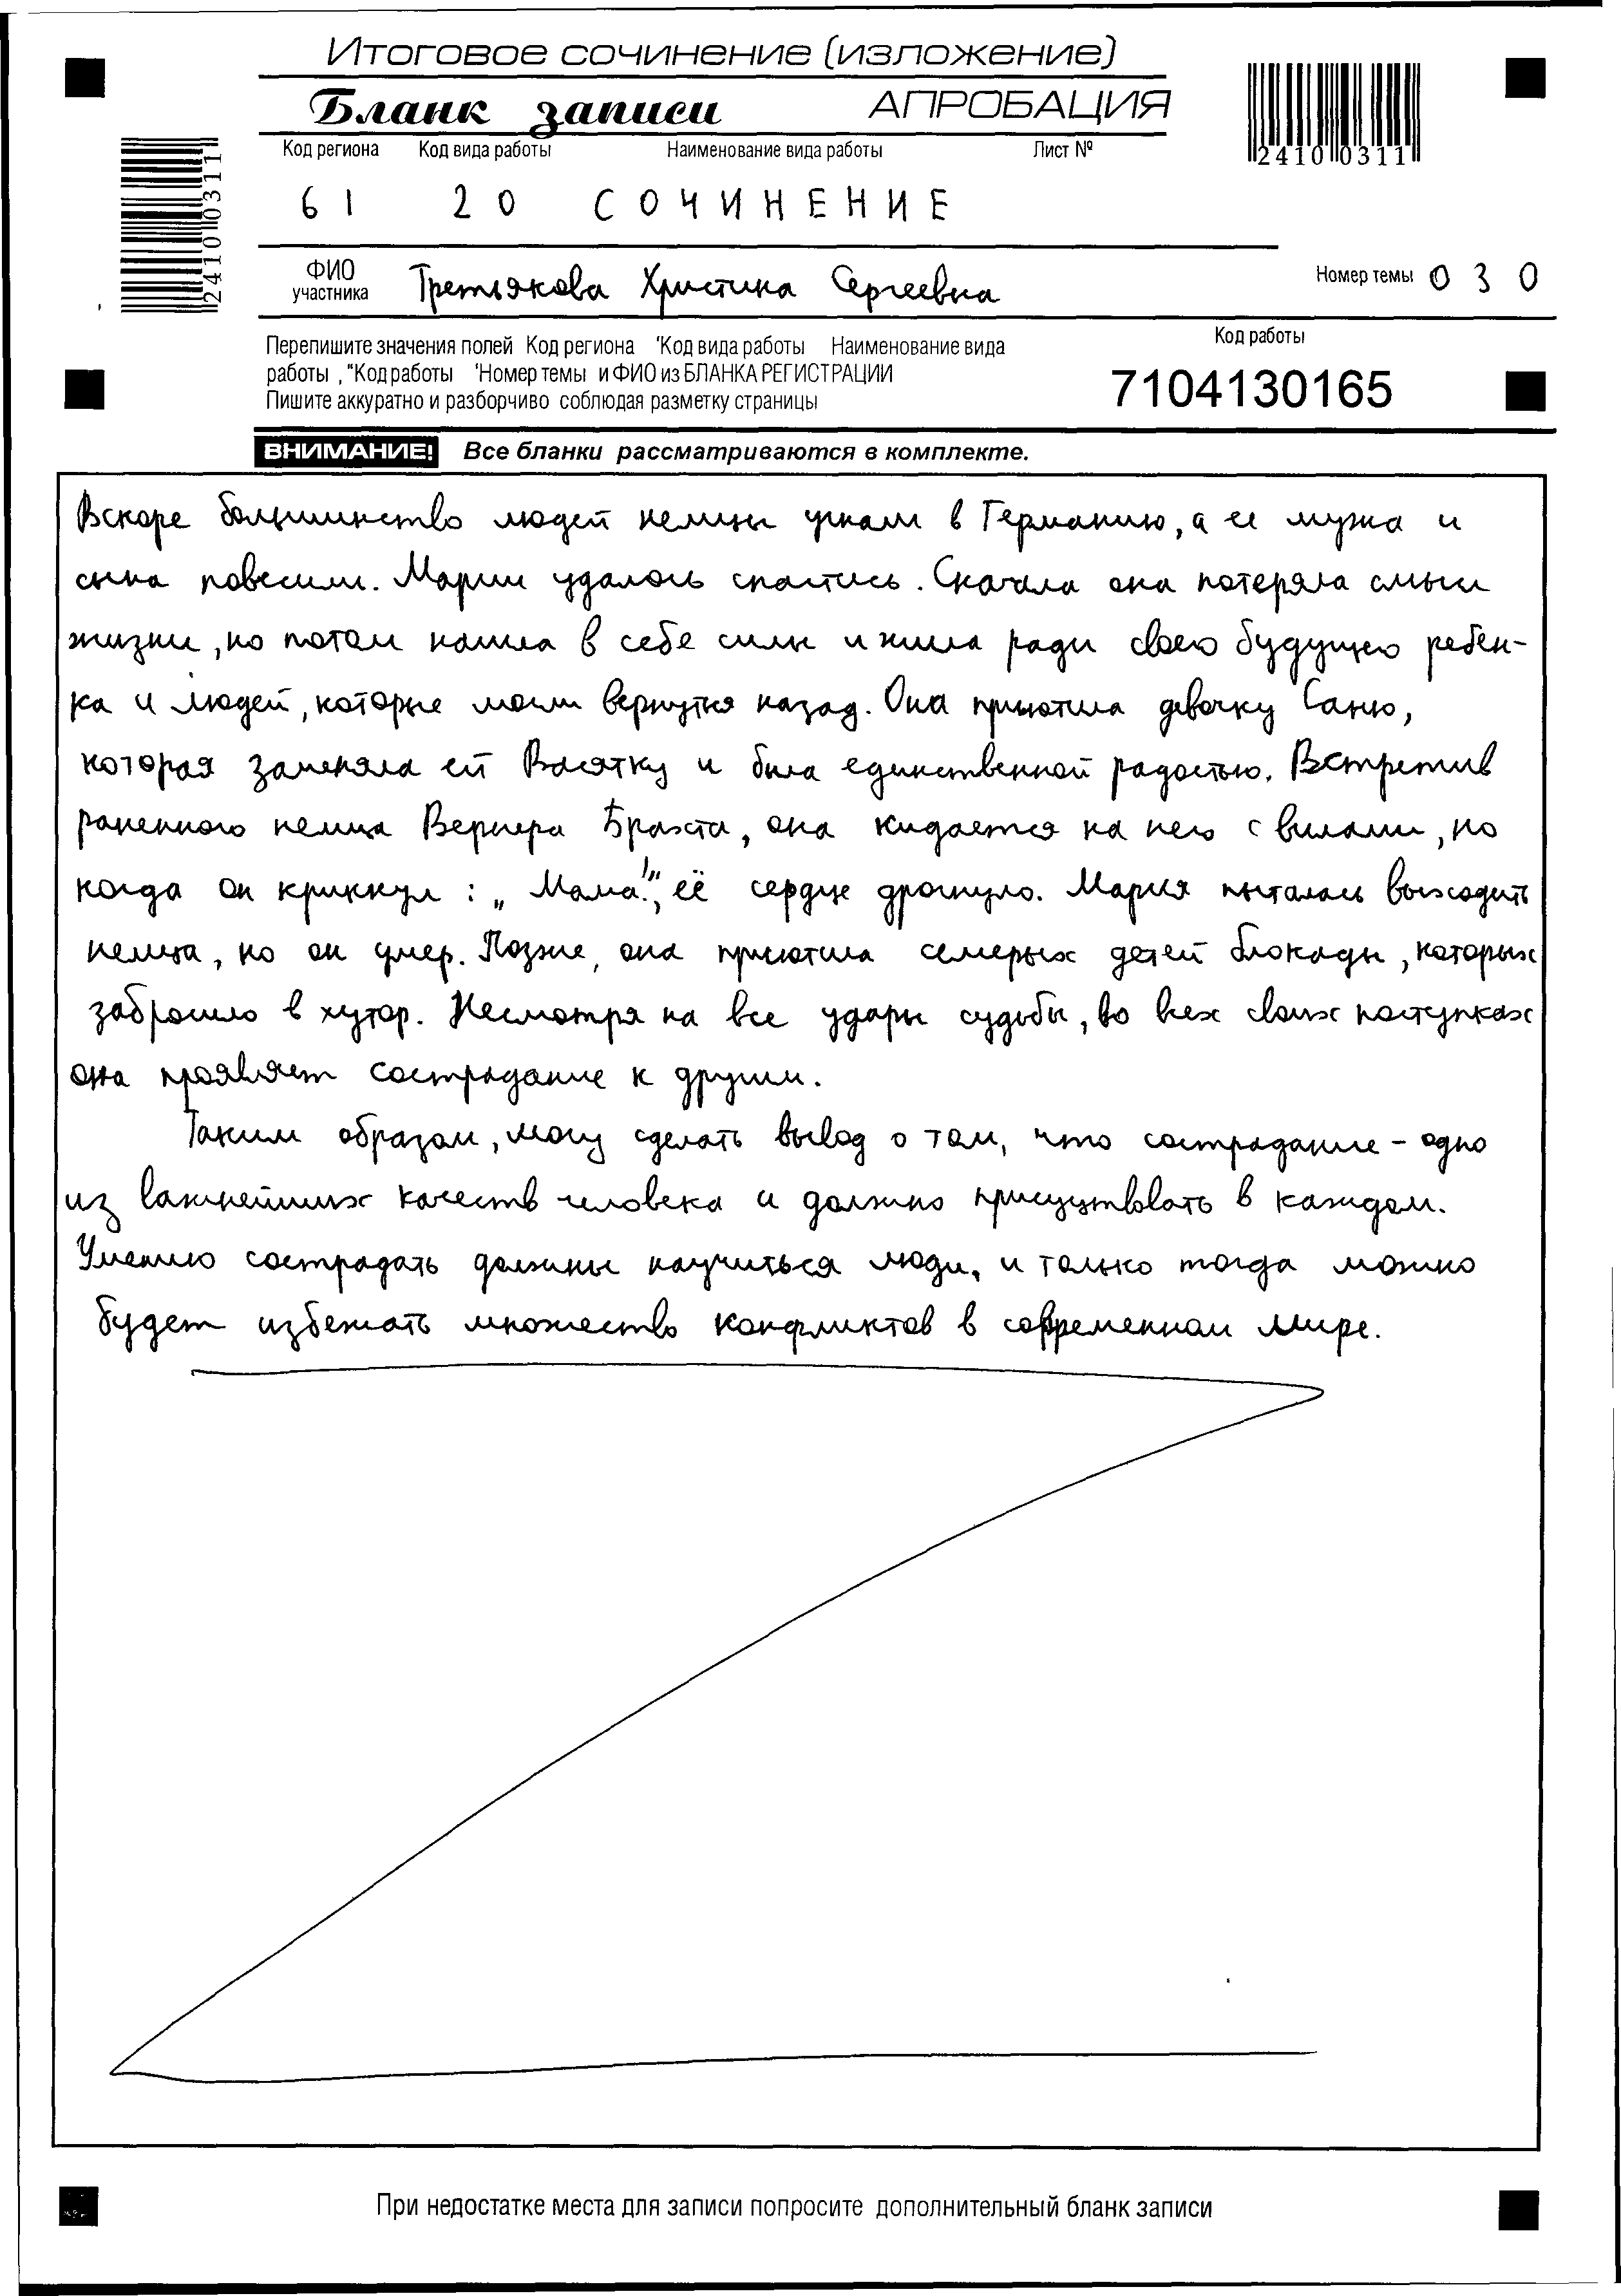 Итоговое сочинение (изложение)
Бланк записи АПРОБАЦИЯ
Код региона Код вида работы Наименование вида работы Лист №
61 20 СОЧИНЕНИЕ
2410 0311
2410 0311
ФИО участника Третьякова Христина Сергеевна Номер темы 030
Перепишите значения полей Код региона 'Код вида работы Наименование вида
работы , "Код работы 'Номер темы и ФИО из БЛАНКА РЕГИСТРАЦИИ
Пишите аккуратно и разборчиво соблюдая разметку страницы
Код работы
7104130165
ВНИМАНИЕ! Все бланки рассматриваются в комплекте.
Вскоре большинство людей немцы угнали в Германию, а ее мужа и
сына повесили. Марии удалось спастись. Сначала она потеряла смысл
жизни, но потом нашла в себе силы и жила ради своего будущего ребен-
ка и людей, которые могли вернуться назад. Она приютила девочку Саню,
которая заменяла ей Васятку и была единственной радостью. Встретив
раненного немца Вернера Бракста, она кидается на него с вилами, но
когда он крикнул: „Мама!", её сердце дрогнуло. Мария пыталась выходить
немца, но он умер. Позже, она приютила семерых детей блокады, которых
забросило в хутор. Несмотря на все удары судьбы, во всех своих поступках
она проявляет сострадание к другим.
Таким образом, могу сделать вывод о том, что сострадание - одно
из важнейших качеств человека и должно присутствовать в каждом.
Умению сострадать должны научиться люди, и только тогда можно
будет избежать множество конфликтов в современном мире.
При недостатке места для записи попросите дополнительный бланк записи